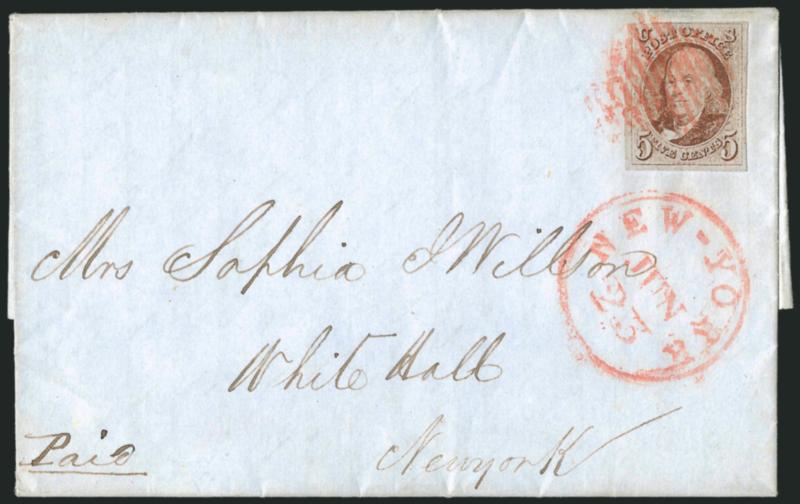 U S
POST OFFICE
5 FIVE CENTS 5
NEW-YORK
JUN
23
Mrs Sophia J Willson
White Hall
Newyork
Paid